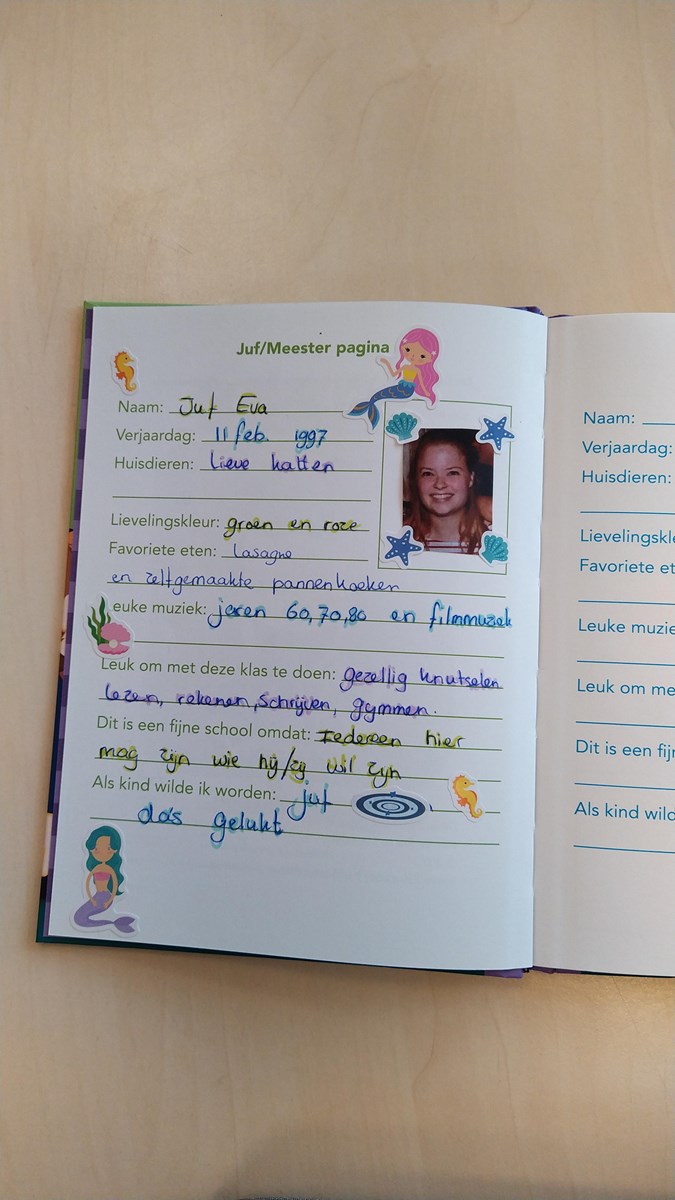 Juf/Meester pagina
Naam: Juf Eva
Verjaardag: 11 feb. 1997
Huisdieren: Lieve katten
Lievelingskleur: groen en roze
Favoriete eten: Lasagne
en zelfgemaakte pannenkoeken
euke muziek: jaren 60,70,80 en filmmuziek
Leuk om met deze klas te doen: gezellig knutselen
lezen, rekenen, schrijven, gymmen.
Dit is een fijne school omdat: Iedereen hier
mag zijn wie hij/zij wil zijn
Als kind wilde ik worden: juf
das gelukt
Naam:
Verjaardag:
Huisdieren:
Lievelingskle
Favoriete et
Leuke muzie
Leuk om me
Dit is een fijn
Als kind wild